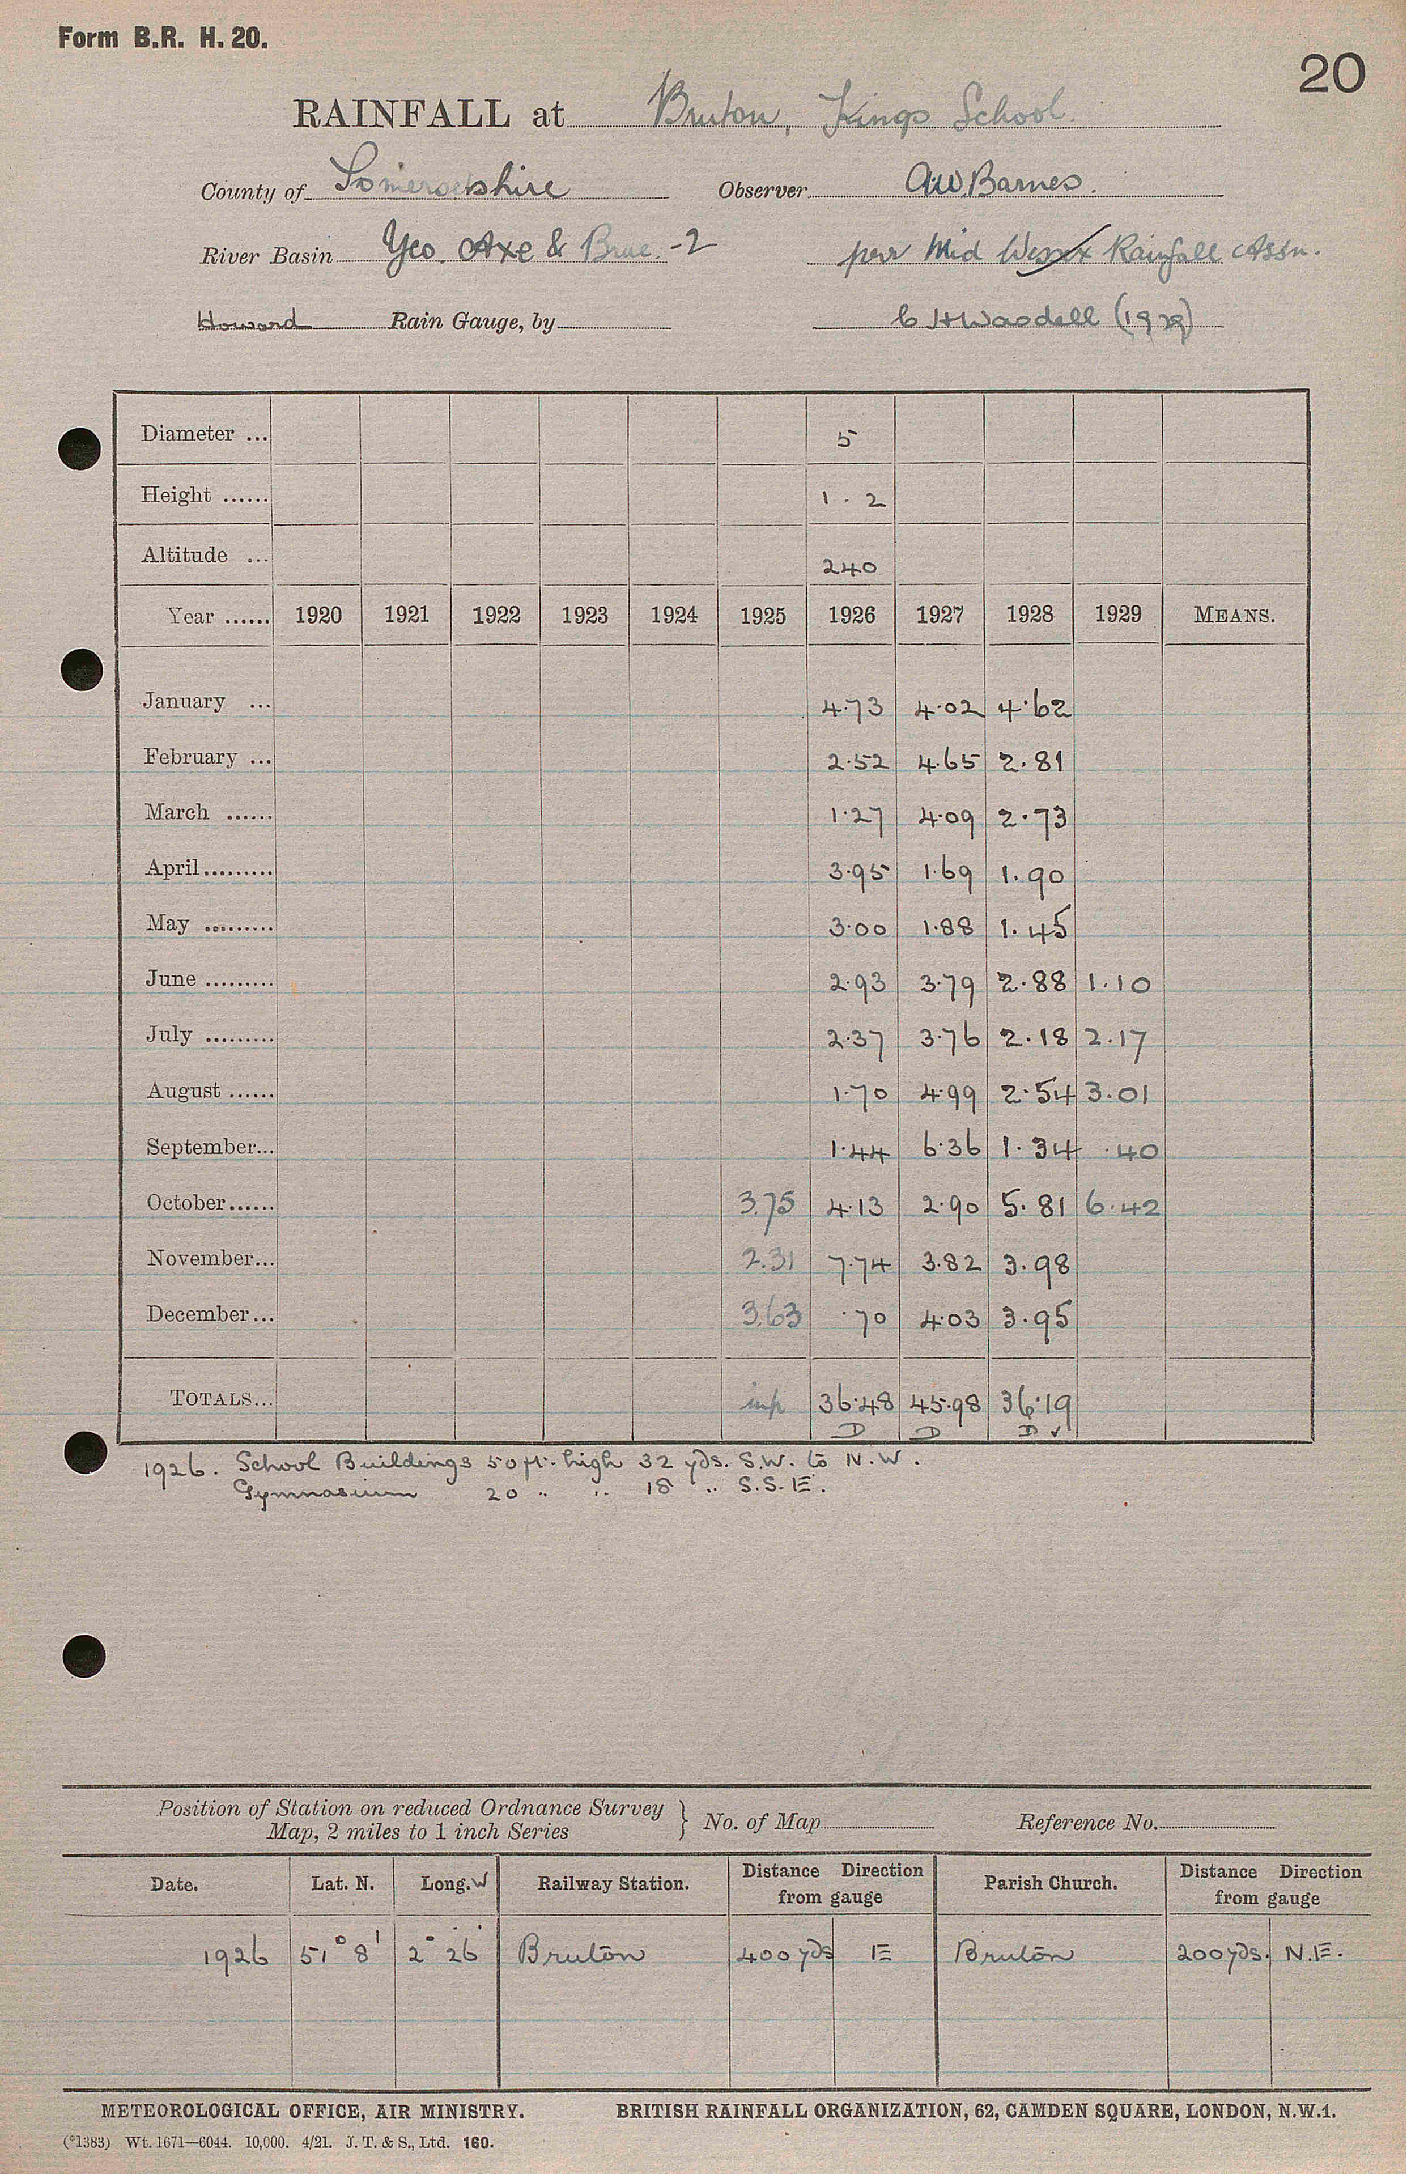 Form B.R. H. 20.
20
RAINFALL at Bruton, Kings School.
County of Somersetshire Observer A.W. Barnes.
River Basin Yeo. Axe & Brue. -2 per Mid Wessex Rainfall Assn.
Howard Rain Gauge, by C H Wasdell (1929)
Diameter ... 5
Height ...... 1 . 2
Altitude ... 240
Year ...... 1920 1921 1922 1923 1924 1925 1926 1927 1928 1929 MEANS.
January ... 4.73 4.02 4.62
February ... 2.52 4.65 2.81
March ...... 1.27 4.09 2.73
April......... 3.95 1.69 1.90
May ......... 3.00 1.88 1.45
June ......... 2.93 3.79 2.88 1.10
July ......... 2.37 3.76 2.18 2.17
August ...... 1.70 4.99 2.54 3.01
September... 1.44 6.36 1.34 .40
October...... 3.75 4.13 2.90 5.81 6.42
November... 2.31 7.74 3.82 3.98
December... 3.63 .70 4.03 3.95
TOTALS... inp 36.48 45.98 36.19
D D D ✓
1926. School Buildings 50 ft. high 32 yds. S.W. to N.W.
Gymnasium 20 .. .. 18 .. S.S.E.
Position of Station on reduced Ordnance Survey
Map, 2 miles to 1 inch Series } No. of Map Reference No.
Date. Lat. N. Long. W Railway Station. Distance Direction from gauge Parish Church. Distance Direction from gauge
1926 51° 8' 2° 26' Bruton 400 yds E Bruton 200 yds. N.E.
METEOROLOGICAL OFFICE, AIR MINISTRY. BRITISH RAINFALL ORGANIZATION, 62, CAMDEN SQUARE, LONDON, N.W.1.
(*1383) Wt. 1671—6044. 10,000. 4/21. J. T. & S., Ltd. 160.